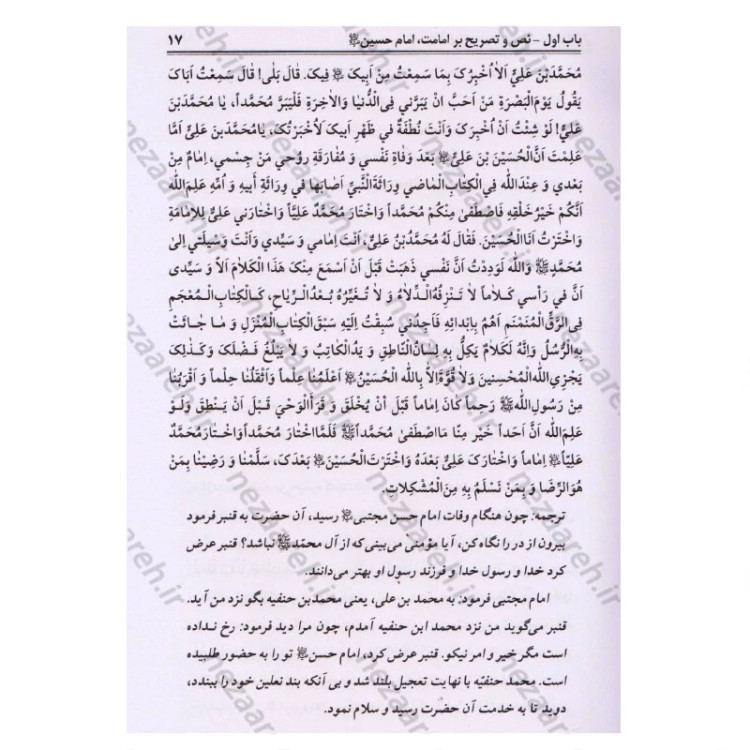 باب اول - نص و تصریح بر امامت، امام حسین ﷺ ۱۷
مُحَمَّدَبْنَ عَلِیٍّ اَلاٰ اُخْبِرُکَ بِمٰا سَمِعْتُ مِنْ اَبیکَ ﷺ فیکَ. قٰالَ بَلیٰ! قٰالَ سَمِعْتُ اَبٰاکَ
یَقُولُ یَوْمَ الْبَصْرَةِ مَنْ اَحَبَّ اَنْ یَبَرَّنی فِی الدُّنْیٰا وَ الاٰخِرَةِ فَلْیَبَرَّ مُحَمَّداً، یٰا مُحَمَّدَبْنَ
عَلِیٍّ! لَوْ شِئْتُ اَنْ اُخْبِرَکَ وَ اَنْتَ نُطْفَةٌ فی ظَهْرِ اَبیکَ لَاَخْبَرْتُکَ، یٰامُحَمَّدَبنَ عَلِیٍّ اَمٰا
عَلِمْتَ اَنَّ الْحُسَیْنَ بْنَ عَلِیٍّ ﷺ بَعْدَ وَفٰاةِ نَفْسی وَ مُفٰارَقَةِ رُوحی مَنْ جِسْمی، اِمٰامٌ مِنْ
بَعْدی وَ عِنْدَ اللّٰه فِی الْکِتٰابِ الْمٰاضی وِرٰاثَةَ النَّبِیِّ اَصٰابَهٰا فی وِرٰاثَةِ أَبیهِ وَ اُمِّهِ عَلِمَ اللّٰه
اَنَّکُمْ خَیْرُ خَلْقِهِ فَاصْطَفیٰ مِنْکُمْ مُحَمَّداً وَ اخْتٰارَ مُحَمَّدٌ عَلِیّاً وَ اخْتٰارَنی عَلِیٌّ لِلْاِمٰامَةِ
وَ اخْتَرْتُ اَنَا الْحُسَیْنَ. فَقٰالَ لَهُ مُحَمَّدُبْنُ عَلِیٍّ، اَنْتَ اِمٰامی وَ سَیِّدی وَ اَنْتَ وَسیلَتی اِلیٰ
مُحَمَّدٍ ﷺ وَ اللّٰه لَوَدِدْتُ اَنَّ نَفْسی ذَهَبَتْ قَبْلَ اَنْ اَسْمَعَ مِنْکَ هٰذَا الْکَلاٰمَ اَلاٰ وَ سَیِّدی
اَنَّ فی رَأسی کَلاٰماً لاٰ تَنْزِفُهُ الدِّلاٰهُ وَ لاٰ تُغَیِّرُهُ بُعْدُ الرِّیٰاحِ، کَالْکِتٰابِ الْمُعْجَمِ
فِی الرَّقِّ الْمُنَمْنَمِ اَهُمُّ بِاِبْدٰائِهِ فَاَجِدُنی سُبِقْتُ اِلَیْهِ سَبَقَ الْکِتٰابُ الْمُنْزَلِ وَ مٰا جٰائَتْ
بِهِ الرُّسُلُ وَ اِنَّهُ لَکَلاٰمٌ یَکِلُّ بِهِ لِسٰانُ النّٰاطِقِ وَ یَدُ الْکٰاتِبُ وَ لاٰ یَبْلُغُ فَضْلَکَ وَ کَذٰلِکَ
یَجْزِی اللّٰه الْمُحْسِنینَ وَ لاٰ قُوَّةَ اِلاّٰ بِاللّٰه الْحُسَیْنُ ﷺ اَعْلَمُنٰا عِلْماً وَ اَثْقَلُنٰا حِلْماً وَ اَقْرَبُنٰا
مِنْ رَسُولِ اللّٰه ﷺ رَحِماً کٰانَ اِمٰاماً قَبْلَ أَنْ یُخْلَقَ وَ قَرَأَ الْوَحْیَ قَبْلَ اَنْ یَنْطِقَ وَ لَوْ
عَلِمَ اللّٰه اَنَّ اَحَداً خَیْر مِنّٰا مَااصْطَفیٰ مُحَمَّداً ﷺ فَلَمَّا اخْتٰارَ مُحَمَّداً وَ اخْتٰارَ مُحَمَّدٌ
عَلِیّاً ﷺ اِمٰاماً وَ اخْتٰارَکَ عَلِیٌّ بَعْدَهُ وَ اخْتَرْتَ الْحُسَیْنَ ﷺ بَعْدَکَ، سَلَّمْنٰا وَ رَضینٰا بِمَنْ
هُوَ الرِّضٰا وَ بِمَنْ نَسْلَمُ بِهِ مِنَ الْمُشْکِلاٰتِ.
ترجمه: چون هنگام وفات امام حسن مجتبی ﷺ رسید، آن حضرت به قنبر فرمود
بیرون از در را نگاه کن، آیا مؤمنی می‌بینی که از آل محمّد ﷺ نباشد؟ قنبر عرض
کرد خدا و رسول خدا و فرزند رسول او بهتر می‌دانند.
امام مجتبی فرمود: به محمد بن علی، یعنی محمدبن حنفیه بگو نزد من آید.
قنبر می‌گوید من نزد محمد ابن حنفیه آمدم، چون مرا دید فرمود: رخ نداده
است مگر خیر و امر نیکو. قنبر عرض کرد، امام حسن ﷺ تو را به حضور طلبیده
است. محمد حنفیّه با نهایت تعجیل بلند شد و بی آنکه بند نعلین خود را ببندد،
دوید تا به خدمت آن حضرت رسید و سلام نمود.
nezaareh.ir